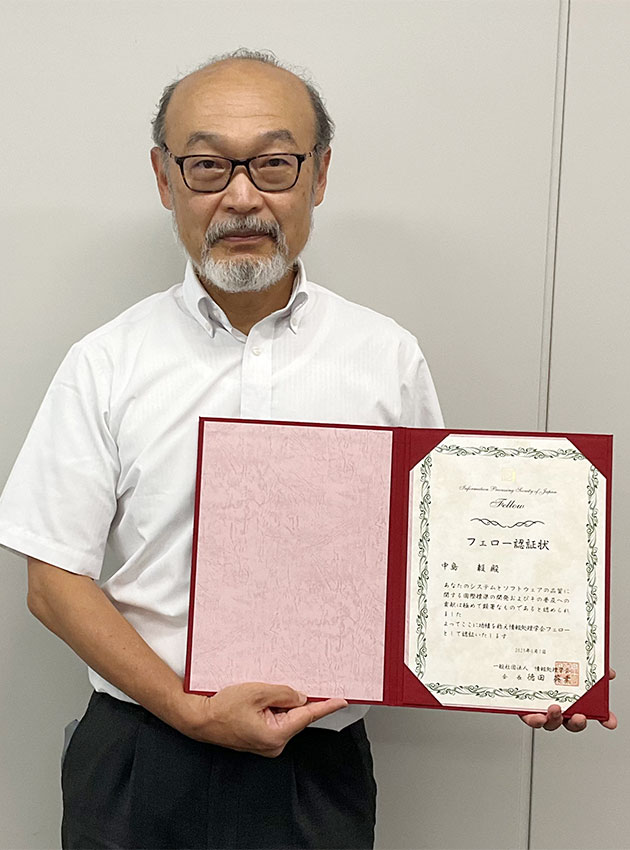 Information Processing Society of Japan
Fellow
フェロー認証状
中島 毅 殿
あなたのシステムとソフトウェアの品質に
関する国際標準の開発およびその普及への
貢献は極めて顕著なものであると認められ
ました
よってここに功績を称え情報処理学会フェロー
として認証いたします
一般社団法人 情報処理学会
会長 徳田 英幸